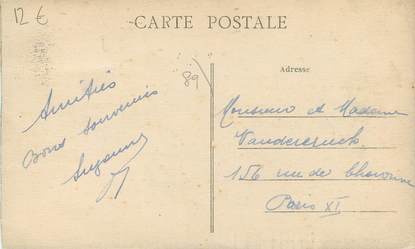 12 €
CARTE POSTALE
89
Adresse
Amitiés
Bons souvenirs
Suzanne
Monsieur et Madame
156 rue de Charonne
Paris XI